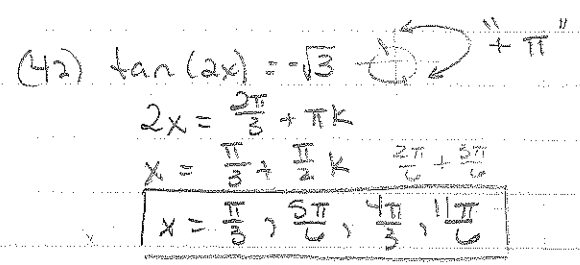 (42) tan(2x) = -√3 "+ π"
2x = 2π/3 + πk
x = π/3 + π/2 k 2π/6 + 3π/6
x = π/3, 5π/6, 4π/3, 11π/6